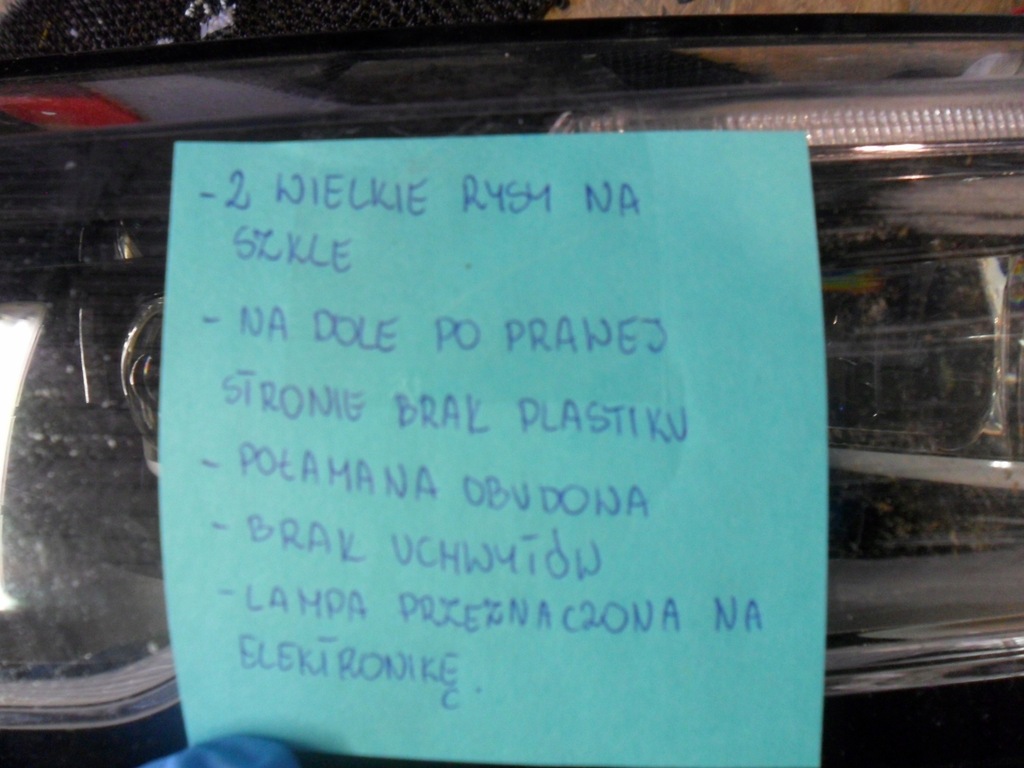 - 2 WIELKIE RYSY NA
SZKLE
- NA DOLE PO PRAWEJ
STRONIE BRAK PLASTIKU
- POŁAMANA OBUDOWA
- BRAK UCHWYTÓW
- LAMPA PRZEZNACZONA NA
ELEKTRONIKĘ.